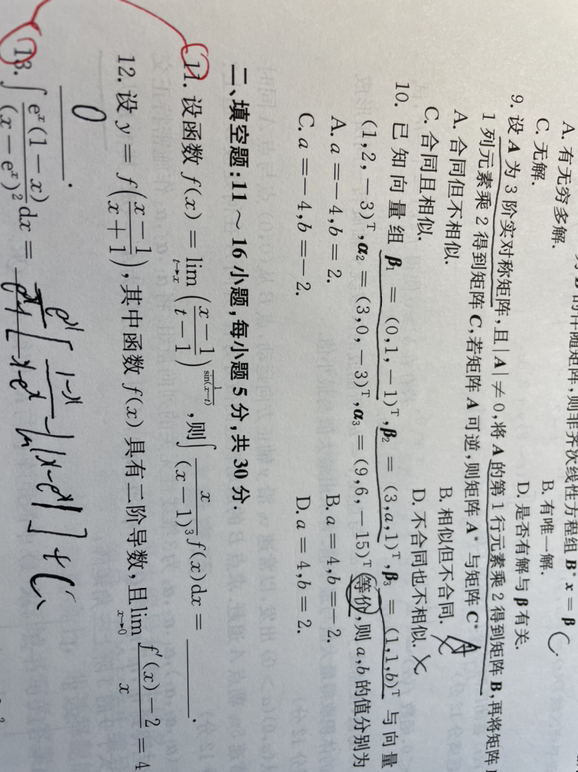 A. 有无穷多解.
B. 有唯一解.
C. 无解.
D. 是否有解与 β 有关.
9. 设 A 为 3 阶实对称矩阵,且 |A| ≠ 0,将 A 的第 1 行元素乘 2 得到矩阵 B,再将矩阵
1 列元素乘 2 得到矩阵 C,若矩阵 A 可逆,则矩阵 A* 与矩阵 C*
A. 合同但不相似.
B. 相似但不合同.
C. 合同且相似.
D. 不合同也不相似.
10. 已知向量组 β₁ = (0,1,−1)ᵀ,β₂ = (3,a,1)ᵀ,β₃ = (1,1,b)ᵀ 与向量
(1,2,−3)ᵀ,α₂ = (3,0,−3)ᵀ,α₃ = (9,6,−15)ᵀ 等价,则 a,b 的值分别为
A. a = −4,b = 2.
B. a = 4,b = −2.
C. a = −4,b = −2.
D. a = 4,b = 2.
二、填空题:11 ～ 16 小题,每小题 5 分,共 30 分.
11. 设函数 f(x) = lim_{t→x} ((x−1)/(t−1))^{1/sin(x−t)},则 ∫ x/(x−1)³ f(x)dx = ______.
12. 设 y = f((x−1)/(x+1)),其中函数 f(x) 具有二阶导数,且 lim_{x→0} (f′(x)−2)/x = 4
0
13. ∫ eˣ(1−x)/(x−eˣ)² dx =